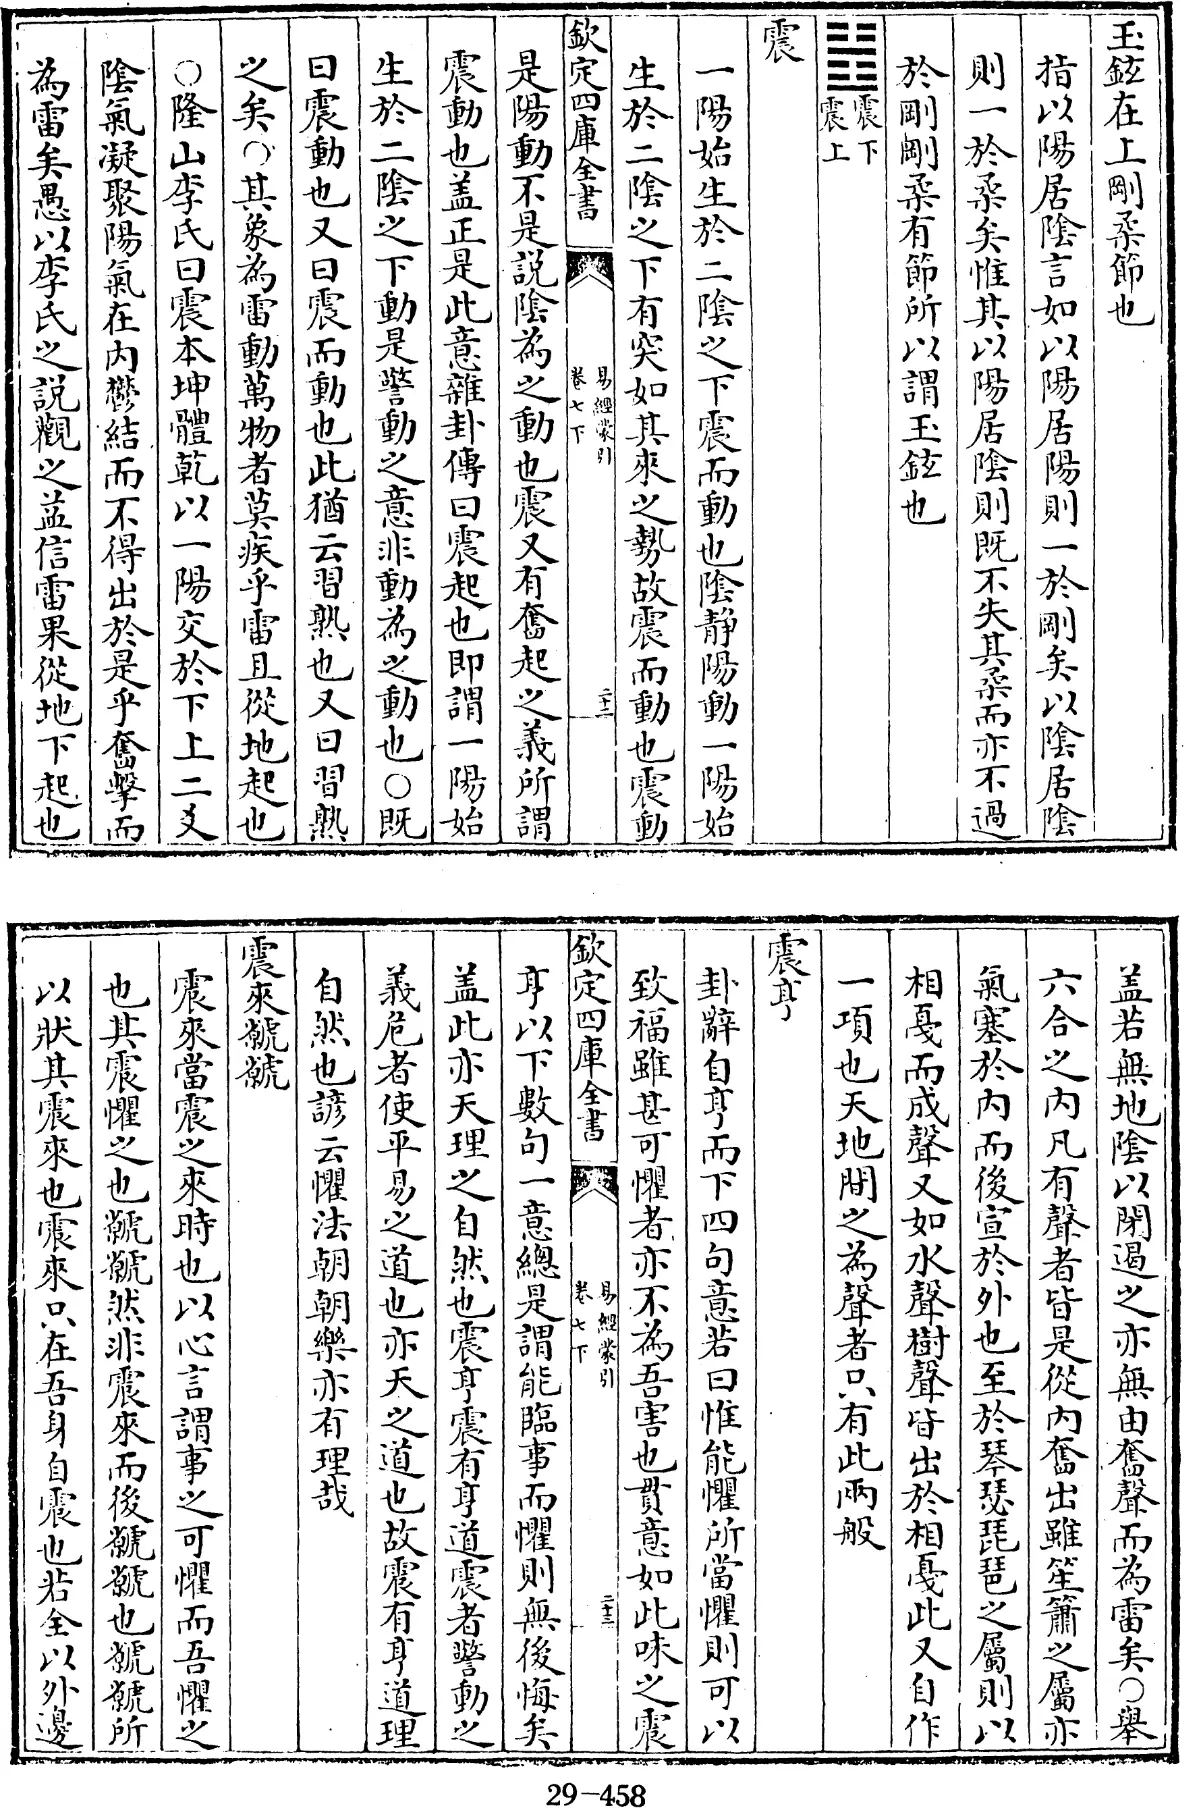 玉鉉在上剛柔節也
指以陽居陰言如以陽居陽則一於剛矣以陰居陰
則一於柔矣惟其以陽居陰則既不失其柔而亦不過
於剛剛柔有節所以謂玉鉉也
䷲震下
震上
震
一陽始生於二陰之下震而動也陰静陽動一陽始
生於二陰之下有突如其來之勢故震而動也震動
欽定四庫全書
易經蒙引
卷七下
二十二
是陽動不是説陰為之動也震又有奮起之義所謂
震動也盖正是此意雜卦傳曰震起也即謂一陽始
生於二陰之下動是警動之意非動為之動也○既
曰震動也又曰震而動也此猶云習熟也又曰習熟
之矣○其象為雷動萬物者莫疾乎雷且從地起也
○隆山李氏曰震本坤體乾以一陽交於下上二爻
陰氣凝聚陽氣在内鬱結而不得出於是乎奮擊而
為雷矣愚以李氏之説觀之益信雷果從地下起也
盖若無地陰以閉遏之亦無由奮聲而為雷矣○舉
六合之内凡有聲者皆是從内奮出雖笙簫之屬亦
氣塞於内而後宣於外也至於琴瑟琵琶之屬則以
相戞而成聲又如水聲樹聲皆出於相戞此又自作
一項也天地間之為聲者只有此兩般
震亨
卦辭自亨而下四句意若曰惟能懼所當懼則可以
致福雖甚可懼者亦不為吾害也貫意如此味之震
欽定四庫全書
易經蒙引
卷七下
二十三
亨以下數句一意總是謂能臨事而懼則無後悔矣
盖此亦天理之自然也震亨震有亨道震者警動之
義危者使平易之道也亦天之道也故震有亨道理
自然也諺云懼法朝朝樂亦有理哉
震來虩虩
震來當震之來時也以心言謂事之可懼而吾懼之
也其震懼之也虩虩然非震來而後虩虩也虩虩所
以狀其震來也震來只在吾身自震也若全以外邊
29-458